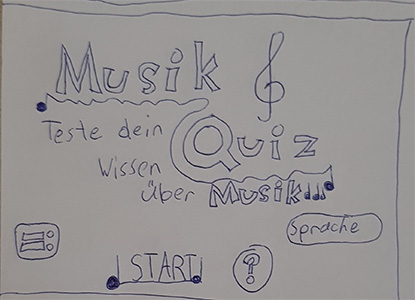 Musik
Teste dein
Quiz
Wissen
über Musik
Sprache
START
?